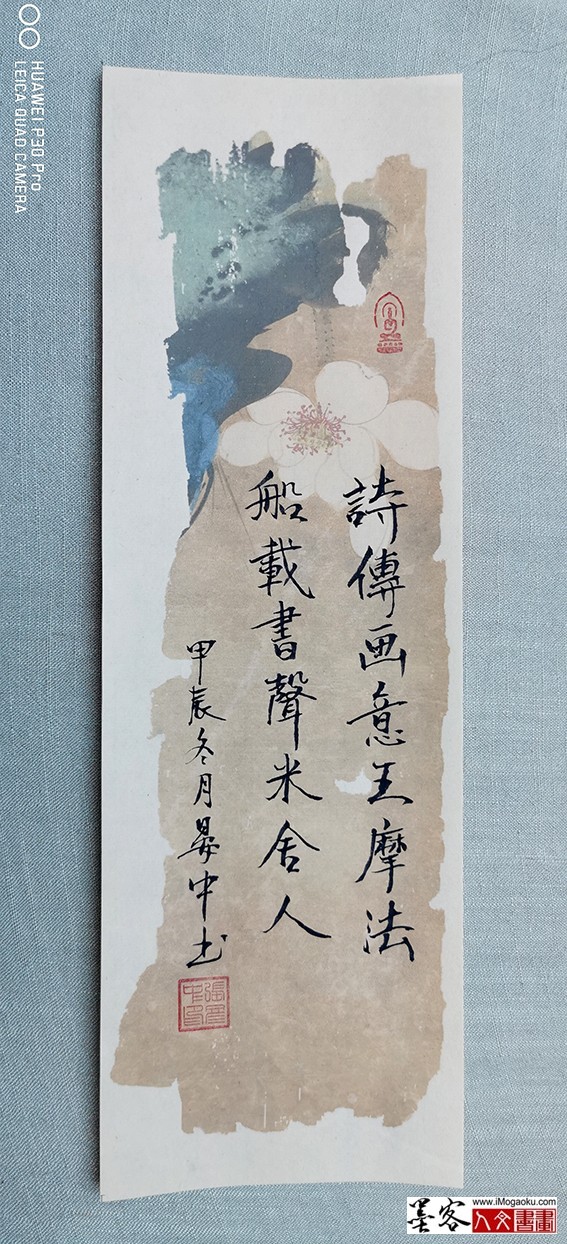 詩傳画意王摩法
船載書聲米舍人
甲辰冬月晏中书
HUAWEI P30 Pro
LEICA QUAD CAMERA
墨客
www.iMogaoku.com
人文書畫